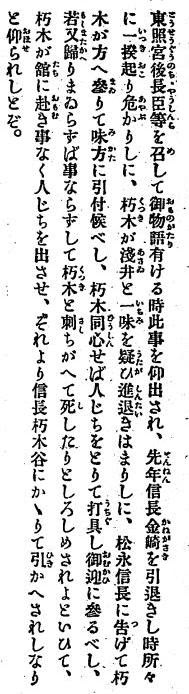 東照宮後長臣等を召して御物語有ける時此事を仰出され、先年信長金崎を引退きし時所々
に一揆起り危かりしに、朽木が淺井と一味を疑ひ進退きはまりしに、松永信長に告げて朽
木が方へ參りて味方に引付候べし、朽木同心せば人じちをとりて打具し御迎に參るべし、
若又歸りまゐらずば事ならずして朽木と刺ちがへて死したりとしろしめされよといひて、
朽木が舘に赴き事なく人じちを出させ、それより信長朽木谷にかゝりて引かへされしなり
と仰られしとぞ。